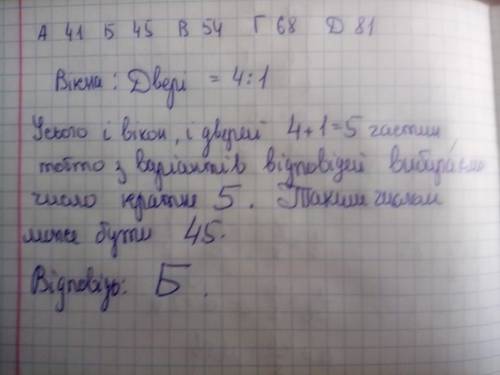 А 41 Б 45 В 54 Г 68 Д 81
Вікна : Двері = 4:1
Усього і вікон, і дверей 4+1=5 частин,
тобто з варіантів відповідей вибираємо
число кратне 5. Таким числом
може бути 45.
Відповідь: Б.